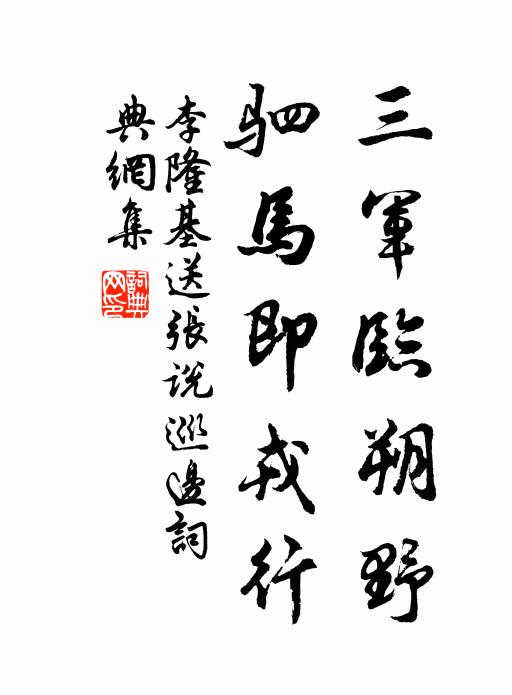 三軍臨朔野
駟馬即戎行
李隆基送張说巡邊詞
典網集
詞典網印